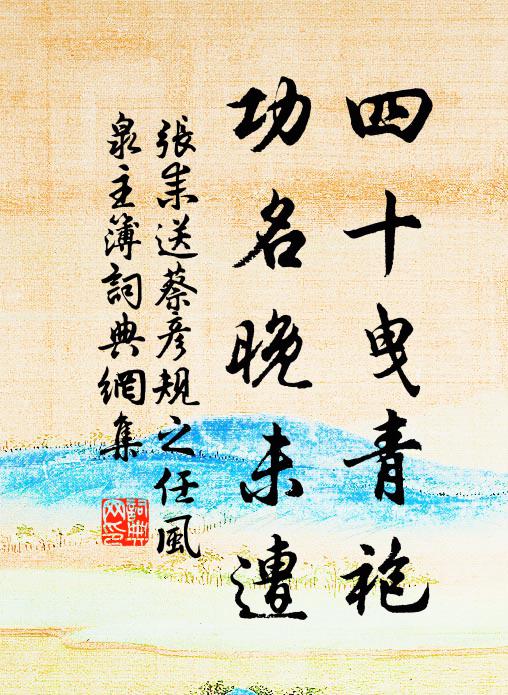 四十曳青袍
功名晚未遭
張耒送蔡彥規之任風
泉主簿詞典網集